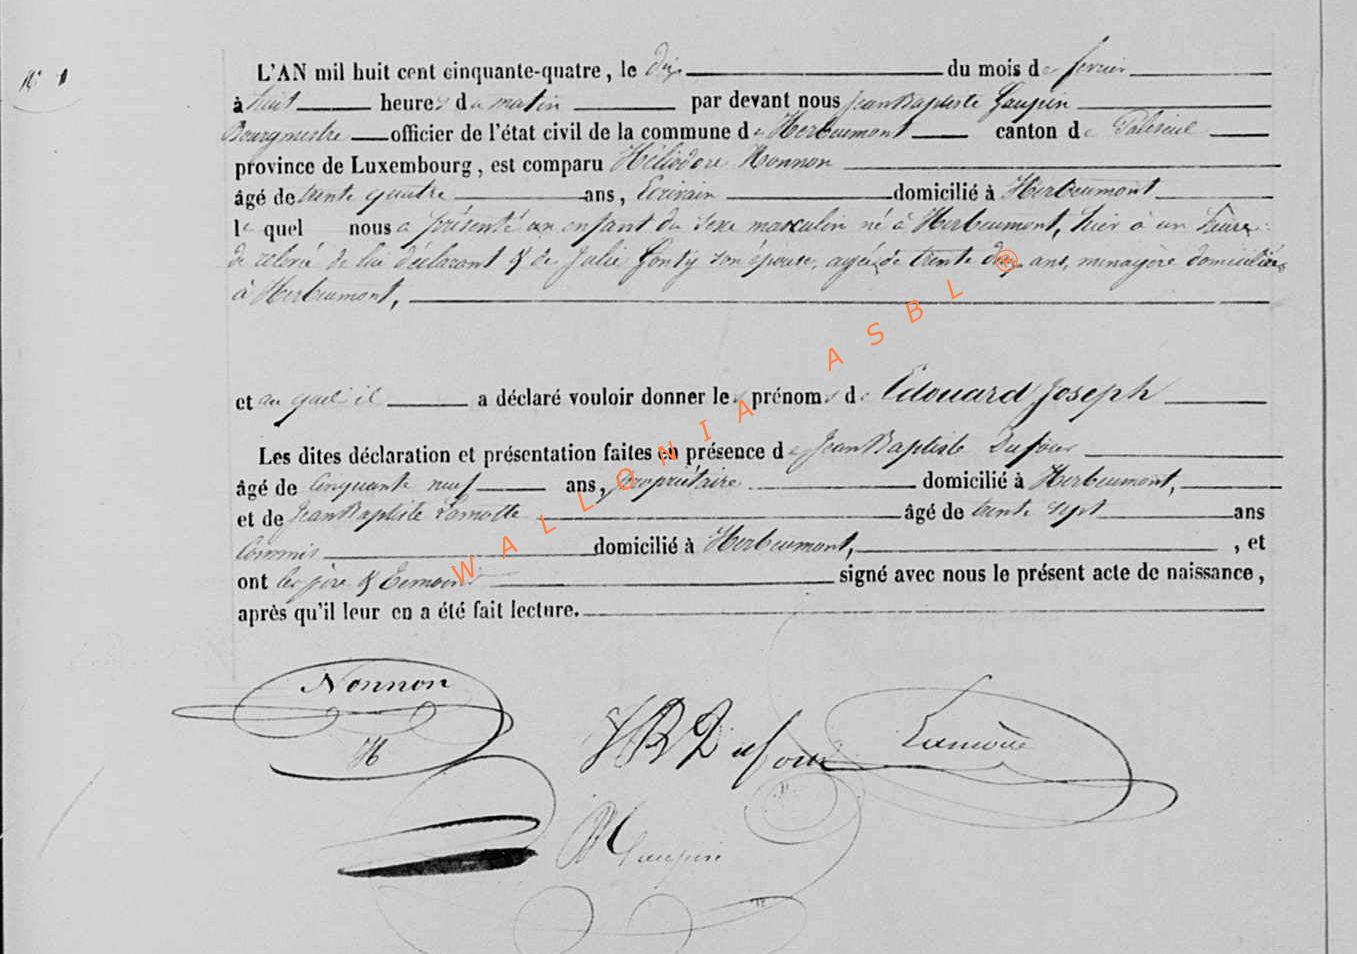 N° 1
L'AN mil huit cent cinquante-quatre, le dix du mois de fevrier
à huit heures du matin par devant nous Jean Baptiste Gaupin
Bourgmestre officier de l'état civil de la commune d'Herbeumont canton de Paliseul
province de Luxembourg, est comparu Héliodore Nonnon
âgé de trente quatre ans, Ecrivain domicilié à Herbeumont
lequel nous a présenté un enfant du sexe masculin né à Herbeumont, hier à un heure
de relevée de lui déclarant & de Julie Gonty son épouse, agée de trente dix ans, menagère domiciliés
à Herbeumont,
et au quel il a déclaré vouloir donner les prénoms de Edouard Joseph
Les dites déclaration et présentation faites en présence de Jean Baptiste Dufour
âgé de Cinquante neuf ans, propriétaire domicilié à Herbeumont,
et de Jean Baptiste Lamotte âgé de trente sept ans
Commis domicilié à Herbeumont, , et
ont les père & temoins signé avec nous le présent acte de naissance,
après qu'il leur en a été fait lecture.
Nonnon
H
JB Dufour
Lamotte
Gaupin
WALLONIA ASBL ®